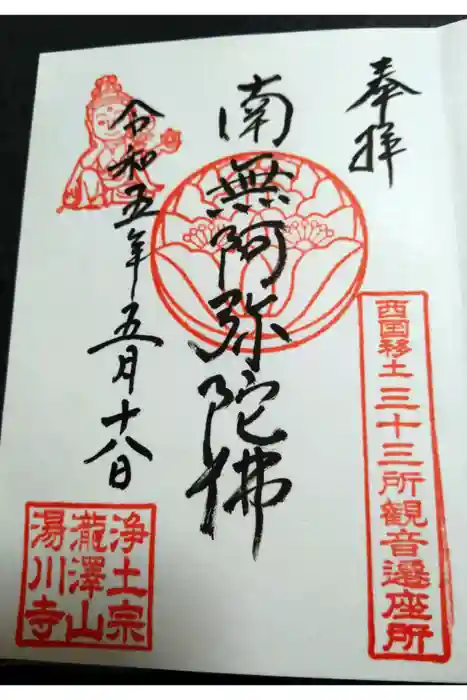 奉拝
西国移土三十三所観音遷座所
南無阿弥陀佛
令和五年五月十八日
浄土宗
瀧澤山
湯川寺